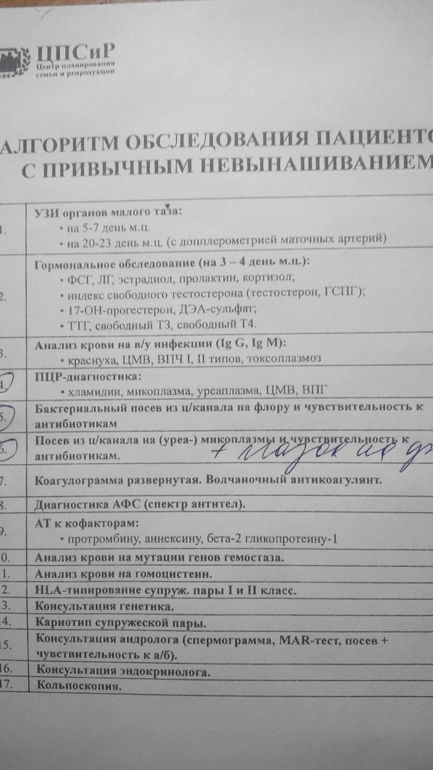 ЦПСиР
Центр планирования
семьи и репродукции
АЛГОРИТМ ОБСЛЕДОВАНИЯ ПАЦИЕНТО
С ПРИВЫЧНЫМ НЕВЫНАШИВАНИЕМ
1. УЗИ органов малого таза:
• на 5-7 день м.ц.
• на 20-23 день м.ц. (с допплерометрией маточных артерий)
2. Гормональное обследование (на 3 – 4 день м.ц.):
• ФСГ, ЛГ, эстрадиол, пролактин, кортизол;
• индекс свободного тестостерона (тестостерон, ГСПГ);
• 17-ОН-прогестерон, ДЭА-сульфат;
• ТТГ, свободный Т3, свободный Т4.
3. Анализ крови на в/у инфекции (Ig G, Ig M):
• краснуха, ЦМВ, ВПЧ I, II типов, токсоплазмоз
4. ПЦР-диагностика:
• хламидии, микоплазма, уреаплазма, ЦМВ, ВПГ
5. Бактериальный посев из ц/канала на флору и чувствительность к
антибиотикам
6. Посев из ц/канала на (уреа-) микоплазмы и чувствительность к
антибиотикам. + мазок на
7. Коагулограмма развернутая. Волчаночный антикоагулянт.
8. Диагностика АФС (спектр антител).
9. АТ к кофакторам:
• протромбину, аннексину, бета-2 гликопротеину-1
0. Анализ крови на мутации генов гемостаза.
1. Анализ крови на гомоцистеин.
2. HLA-типирование супруж. пары I и II класс.
3. Консультация генетика.
14. Кариотип супружеской пары.
15. Консультация андролога (спермограмма, MAR-тест, посев +
чувствительность к а/б).
16. Консультация эндокринолога.
17. Кольпоскопия.